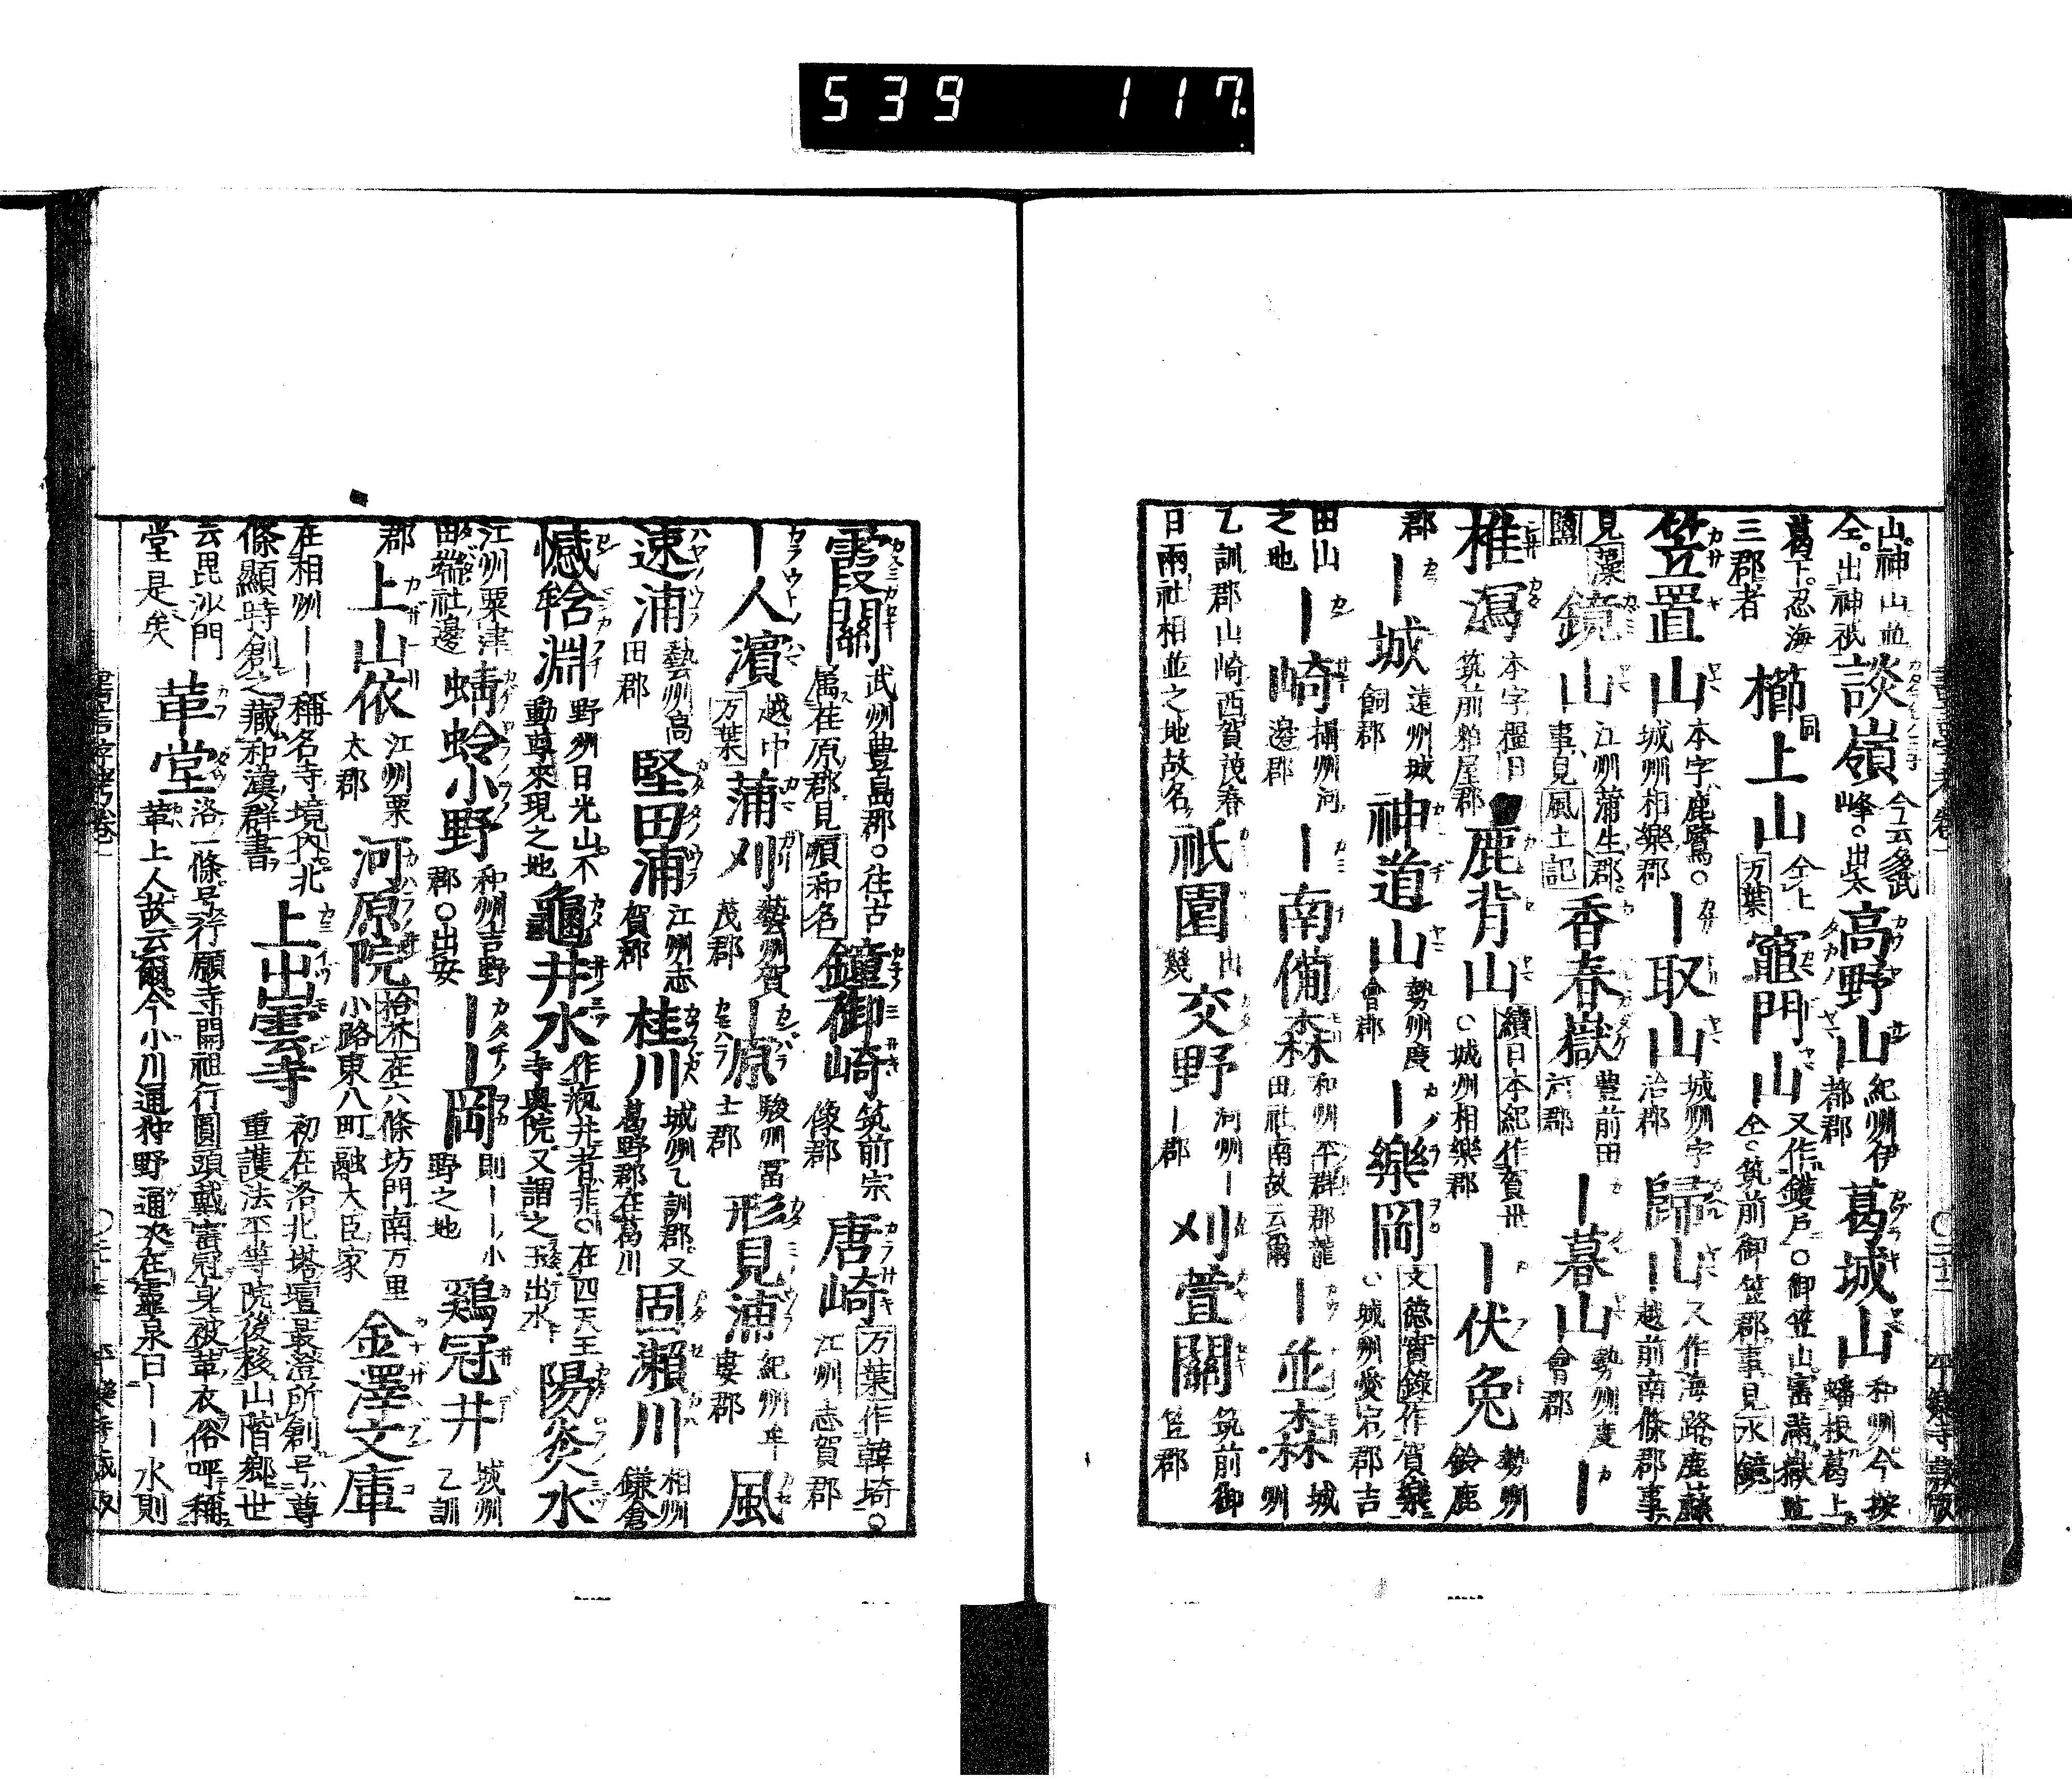 539 117
山神山並
仝出神祇
談嶺
今云多武
峰○出太
高野山
紀州伊
都郡
葛城山
和州今按
蟠根葛上
葛下忍海
三郡者
櫛上山
同
仝上
万葉
竈門山
又作鑊戸○御笠山宝満嶽並
仝○筑前御笠郡事見水鏡
笠置山
本字鹿鷺○
城州相樂郡
ー取山
城州宇
治郡
歸ー山
又作海路鹿蒜
越前南條郡事
見藻
鹽
鏡山
江州蒲生郡
事見風土記
香春嶽
豊前田
河郡
ー暮山
勢州度
會郡
ー
椎瀉
本字橿日
筑前粕屋郡
鹿背山
續日本紀作賀世
○城州相樂郡
ー伏兔
勢州
鈴鹿
郡
ー城
遠州城
飼郡
神道山
勢州度
會郡
ー樂岡
文徳實録作賀樂
城州愛宕郡吉
田山
之地
ー崎
攝州河
邊郡
ー南備森
和州平群郡龍
田社南故云爾
ー並森
城
州
乙訓郡山崎西賀茂春
日兩社相並之地故名
祇園
幾
交野
河州ー
ー郡
刈萱關
筑前御
笠郡
霞關
武州豊島郡○往古
属荏原郡見順和名
鐘御崎
筑前宗
像郡
唐崎
万葉作韓埼○
江州志賀郡
ー人濱
越中
万葉
蒲刈
藝州賀
茂郡
ー原
駿州冨
士郡
形見浦
紀州牟
婁郡
風
速浦
藝州高
田郡
堅田浦
江州志
賀郡
桂川
城州乙訓郡又
葛野郡在葛川
固瀬川
相州
鎌倉
憾𤚥淵
野州日光山不
動尊來現之地
龜井水
作瓶井者非○在四天王
寺奥院又謂之玉出水
陽炎水
江州粟津
田端社邊
蜻蛉小野
和州吉野
郡○出安
ーー岡
則ーー小
野之地
鶏冠井
城州
乙訓
郡
上山依
江州栗
太郡
河原院
拾芥在六條坊門南万里
小路東八町融大臣家
金澤文庫
在相州ーー稱名寺境内北
條顯時創之藏和漢群書
上出雲寺
初在洛北塔壇最澄所創号尊
重護法平等院後移山階郷世
云毘沙門
堂是矣
革堂
洛一條号行願寺開祖行圓頭戴宝冠身被革衣俗呼稱
革上人故云爾今小川通狩野通突在靈泉曰ーー水則